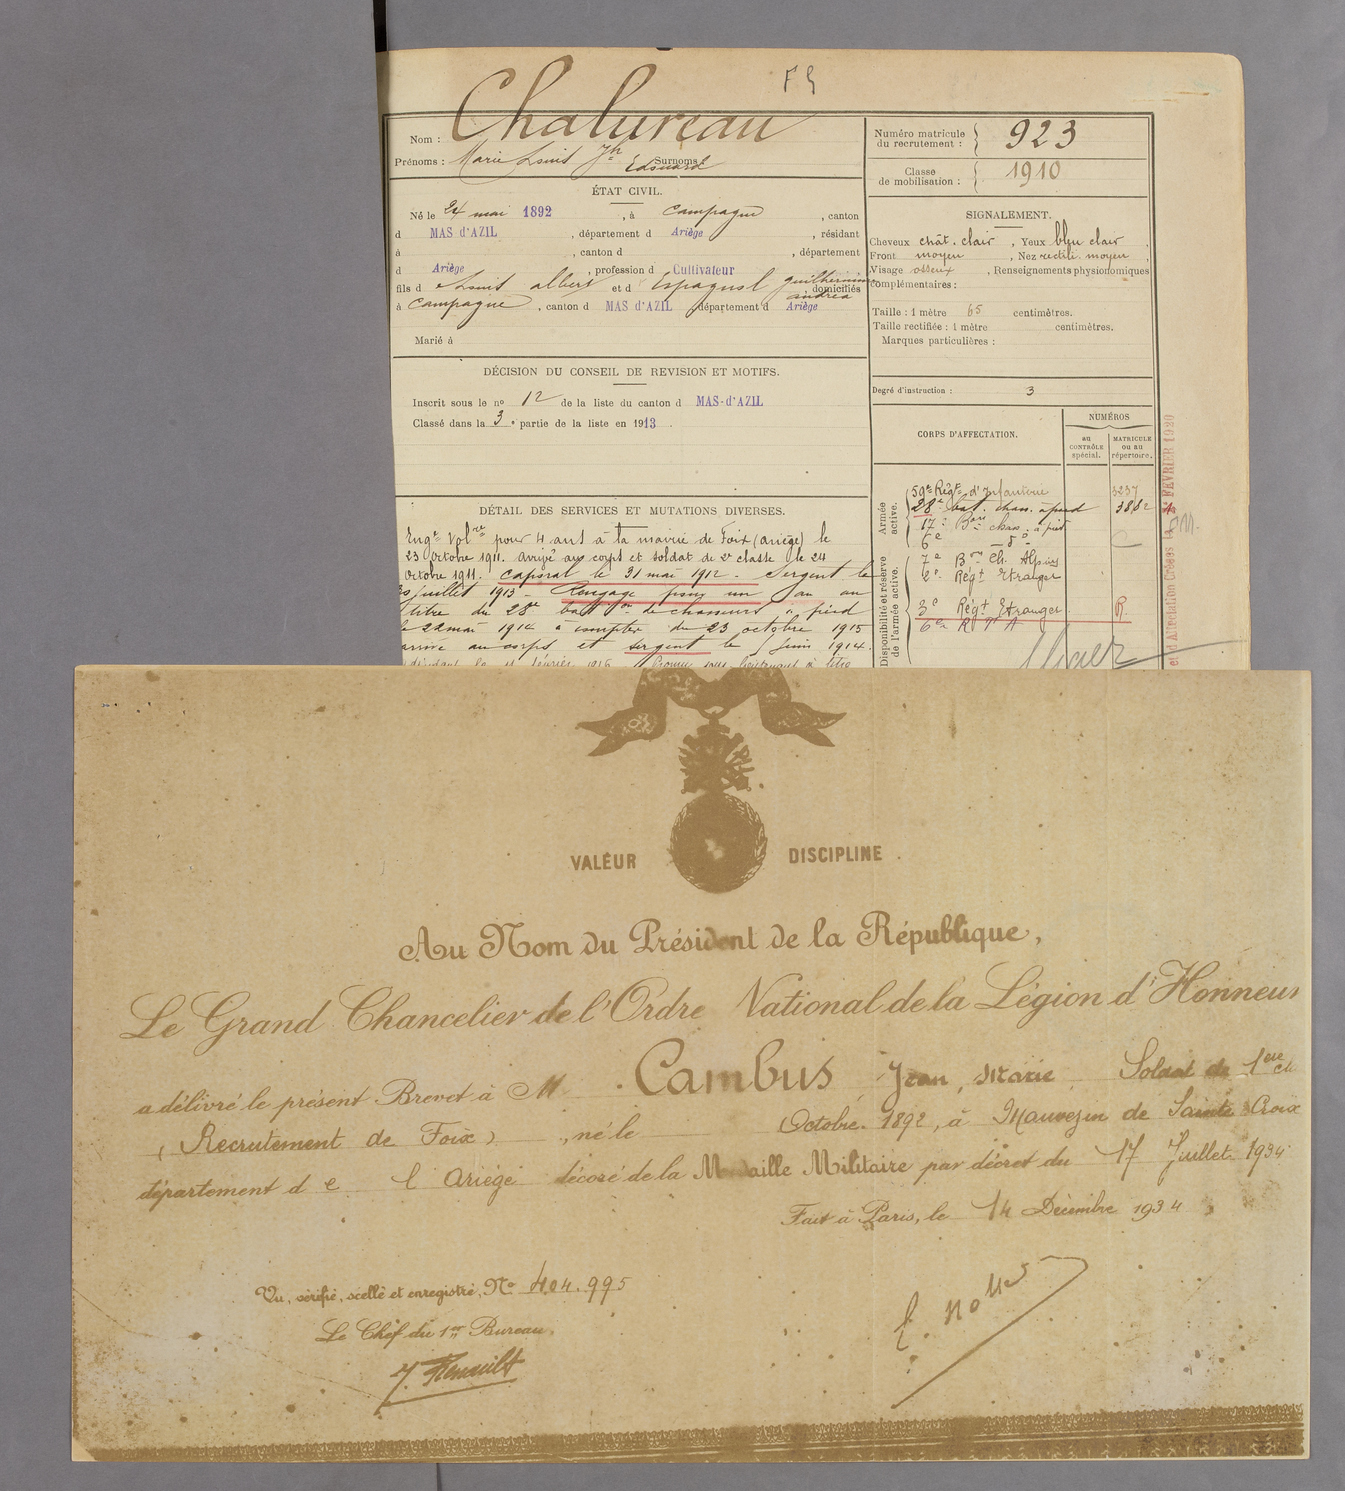 F 9
Nom : Chalureau
Prénoms : Marie Louis Jh Edouard Surnoms :
Numéro matricule du recrutement : 923
Classe de mobilisation : 1910
ÉTAT CIVIL.
Né le 24 mai 1892, à Campagne, canton
d MAS d'AZIL, département d Ariège, résidant
à , canton d , département
d Ariège, profession d Cultivateur
fils d e Louis albert et d Espagnol guilhermine andréa domiciliés
à Campagne, canton d MAS d'AZIL département d Ariège
Marié à
SIGNALEMENT.
Cheveux chât. clair, Yeux bleu clair,
Front moyen, Nez rectili. moyen,
Visage osseux, Renseignements physionomiques
complémentaires :
Taille : 1 mètre 65 centimètres.
Taille rectifiée : 1 mètre centimètres.
Marques particulières :
Degré d'instruction : 3
DÉCISION DU CONSEIL DE REVISION ET MOTIFS.
Inscrit sous le no 12 de la liste du canton d MAS-d'AZIL
Classé dans la 3e partie de la liste en 1913.
CORPS D'AFFECTATION.
NUMÉROS
au CONTRÔLE spécial.
MATRICULE ou au répertoire.
Armée active.
59e Régt d'Infanterie 3237
28e bat. chas. à pied 3882
17e Bon chas. à pied
6e — do —
Disponibilité et réserve de l'armée active.
7e Bon Ch. Alpins
2e Régt Etranger
3e Régt Etranger R
6e R T A
et d'Affectation Créées la FÉVRIER 1920
DÉTAIL DES SERVICES ET MUTATIONS DIVERSES.
Engé Volre pour 4 ans à la mairie de Foix (ariège) le
23 Octobre 1911. arrivé au corps et soldat de 2e classe le 24
Octobre 1911. Caporal le 31 mai 1912 - Sergent le
juillet 1913 - Rengagé pour un an au
titre du 28e batton de chasseurs à pied
le 22 mai 1914 à compter du 23 octobre 1915
arrivé au corps et sergent le 5 juin 1914.
VALEUR DISCIPLINE
Au Nom du Président de la République,
Le Grand Chancelier de l'Ordre National de la Légion d'Honneur
a délivré le présent Brevet à M Cambus Jean, Marie Soldat de 1ere cl
(Recrutement de Foix), né le Octobre 1892, à Mauvezin de Sainte Croix
département d e l Ariége décoré de la Médaille Militaire par décret du 17 Juillet 1934
Fait à Paris, le 14 Décembre 1934
Vu, vérifié, scellé et enregistré, No 404.995
Le Chef du 1er Bureau,
J. Renault